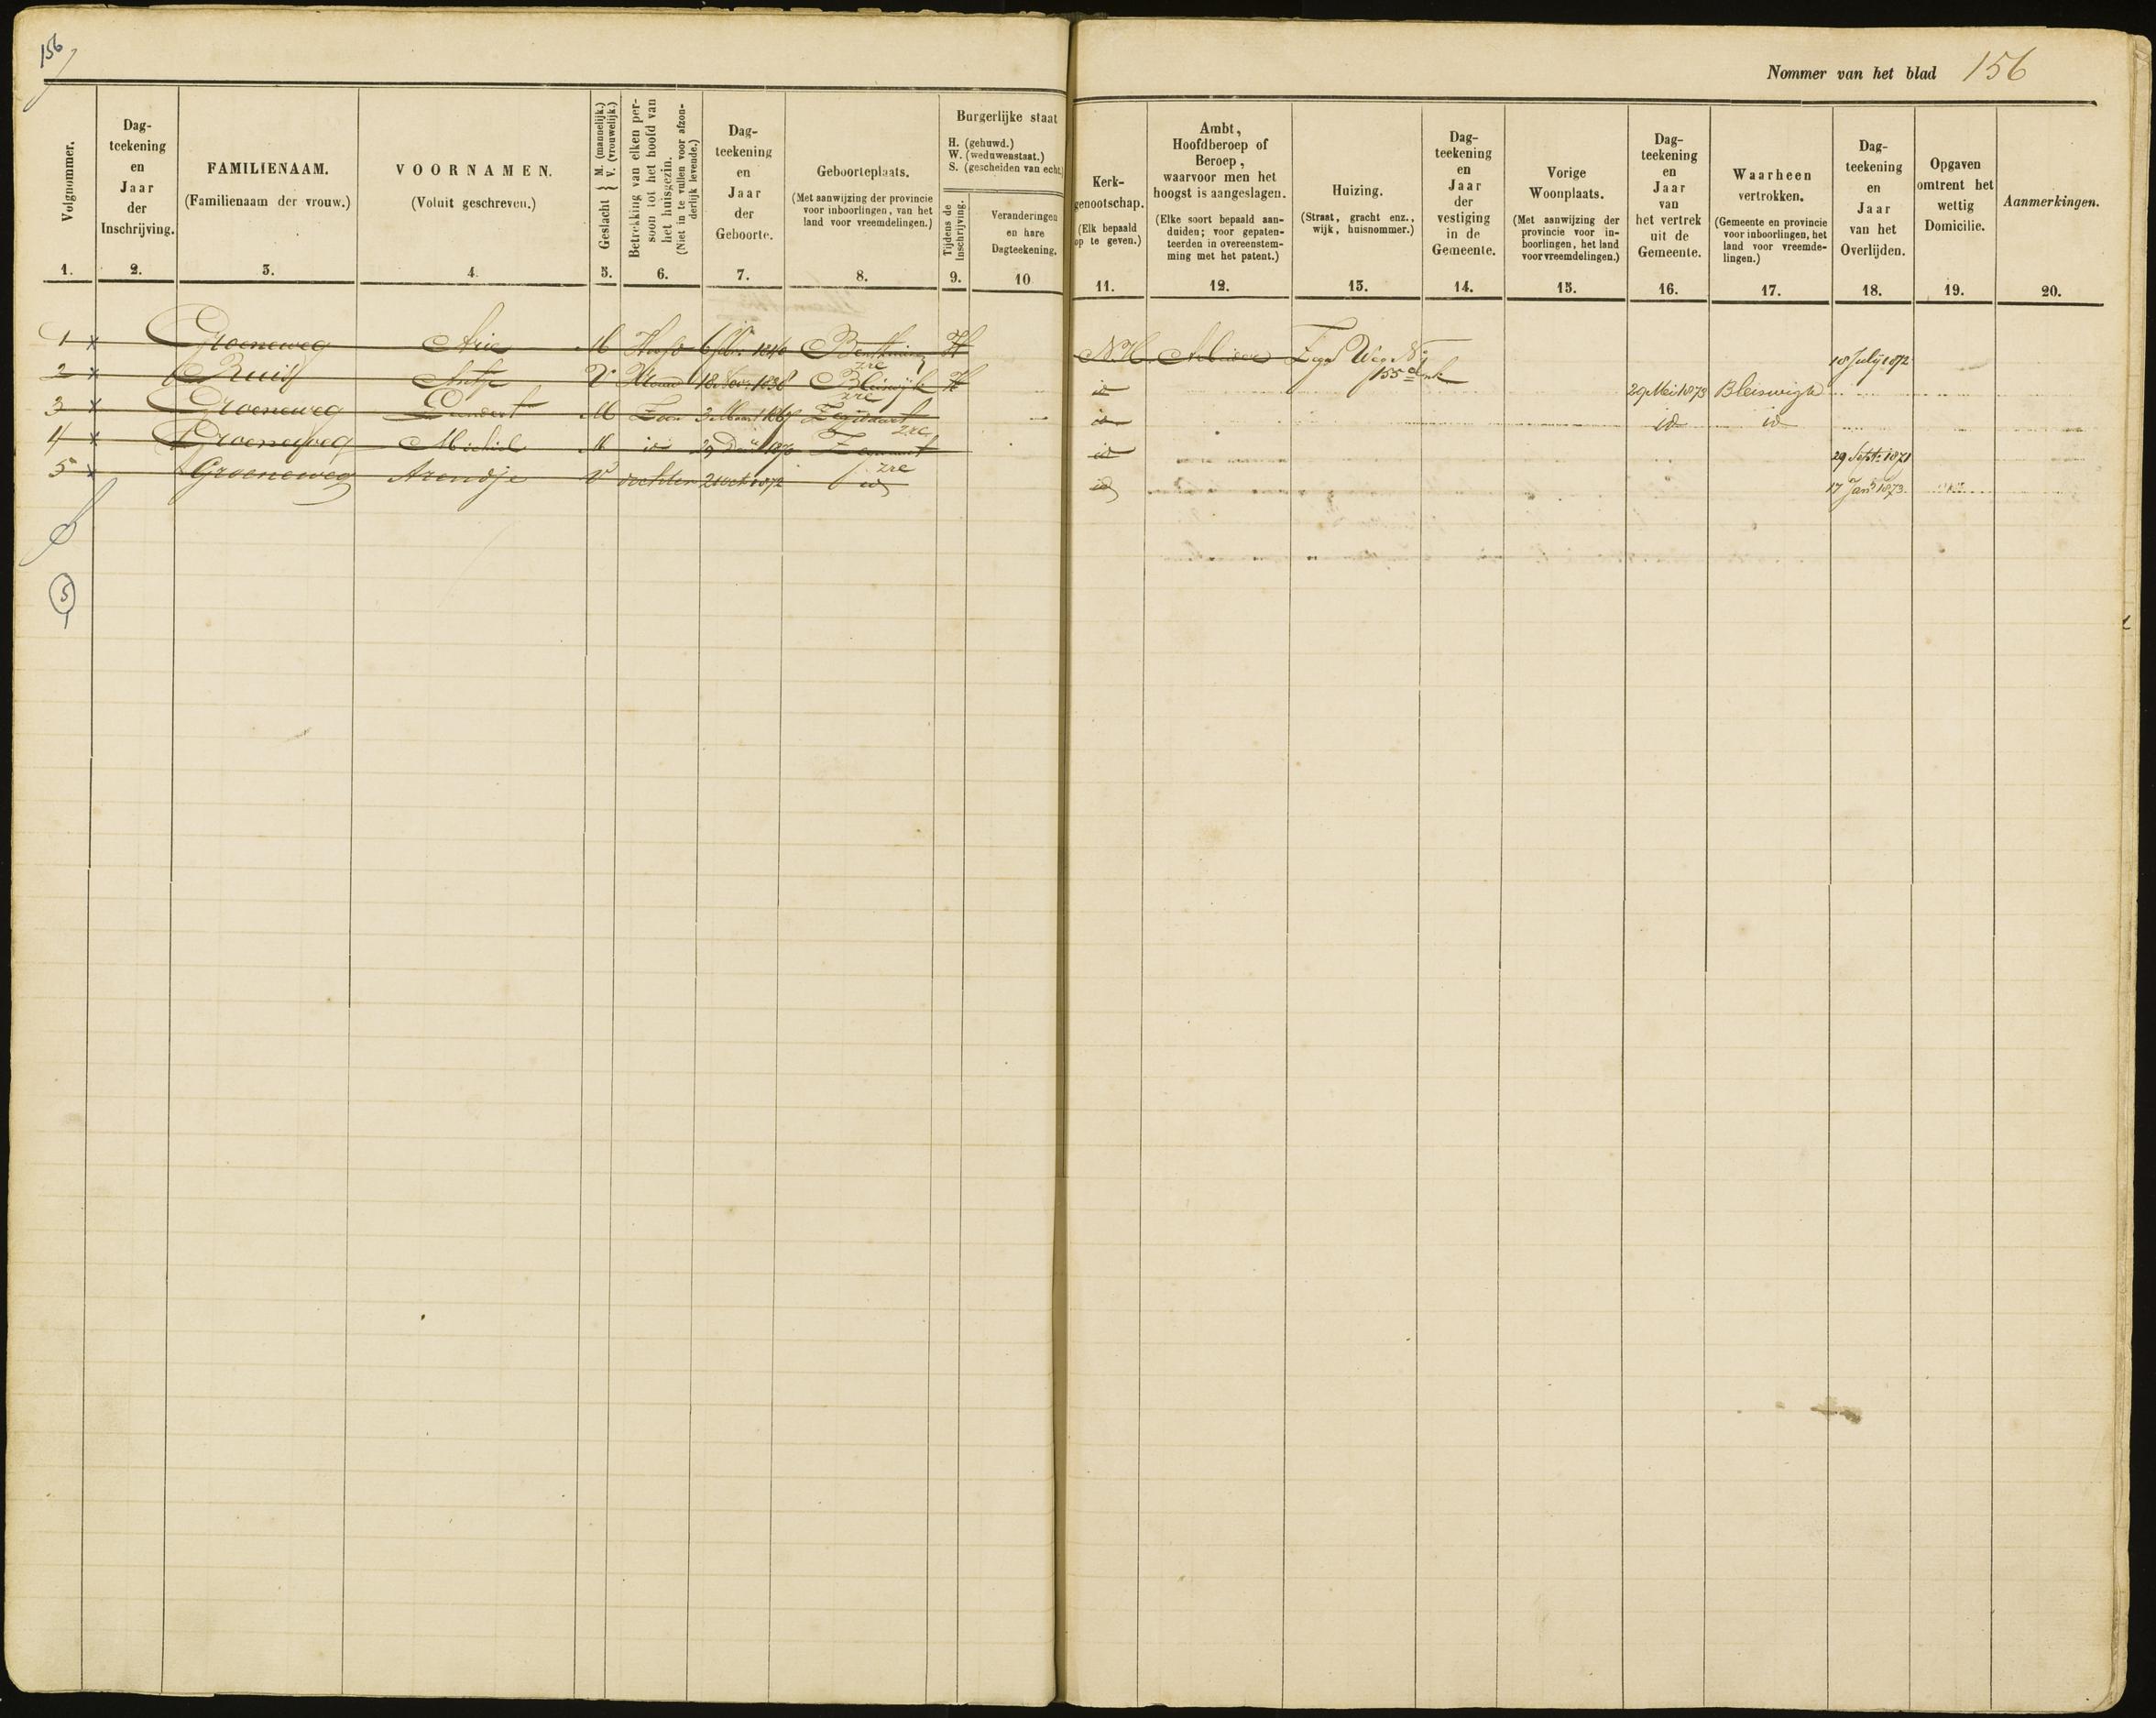 156
Nommer van het blad 156
Volgnommer.
1.
Dag-
teekening
en
Jaar
der
Inschrijving.
2.
FAMILIENAAM.
(Familienaam der vrouw.)
3.
VOORNAMEN.
(Voluit geschreven.)
4.
Geslacht { M. (mannelijk.)
V. (vrouwelijk.)
5.
Betrekking van elken per-
soon tot het hoofd van
het huisgezin.
(Niet in te vullen voor afzon-
derlijk levende.)
6.
Dag-
teekening
en
Jaar
der
Geboorte.
7.
Geboorteplaats.
(Met aanwijzing der provincie
voor inboorlingen, van het
land voor vreemdelingen.)
8.
Burgerlijke staat
H. (gehuwd.)
W. (weduwenstaat.)
S. (gescheiden van echt.)
Tijdens de
inschrijving.
9.
Veranderingen
en hare
Dagteekening.
10
Kerk-
genootschap.
(Elk bepaald
op te geven.)
11.
Ambt,
Hoofdberoep of
Beroep,
waarvoor men het
hoogst is aangeslagen.
(Elke soort bepaald aan-
duiden; voor gepaten-
teerden in overeenstem-
ming met het patent.)
12.
Huizing.
(Straat, gracht enz.,
wijk, huisnommer.)
13.
Dag-
teekening
en
Jaar
der
vestiging
in de
Gemeente.
14.
Vorige
Woonplaats.
(Met aanwijzing der
provincie voor in-
boorlingen, het land
voor vreemdelingen.)
15.
Dag-
teekening
en
Jaar
van
het vertrek
uit de
Gemeente.
16.
Waarheen
vertrokken.
(Gemeente en provincie
voor inboorlingen, het
land voor vreemde-
lingen.)
17.
Dag-
teekening
en
Jaar
van het
Overlijden.
18.
Opgaven
omtrent het
wettig
Domicilie.
19.
Aanmerkingen.
20.
1 x Groeneweg Arie M Hoofd H NH 18 July 1872
2 x Ruis Antje V Vrouw Bleiswijk zre H id 29 Mei 1873 Bleiswijk
3 x Groeneweg Leendert M Zoon zre id id id
4 x Groeneweg Michiel M id id 29 Sept: 1871
5 x Groeneweg Arendje V dochter 21 oct 1872 zre id id 17 Jan 1873.
155
5